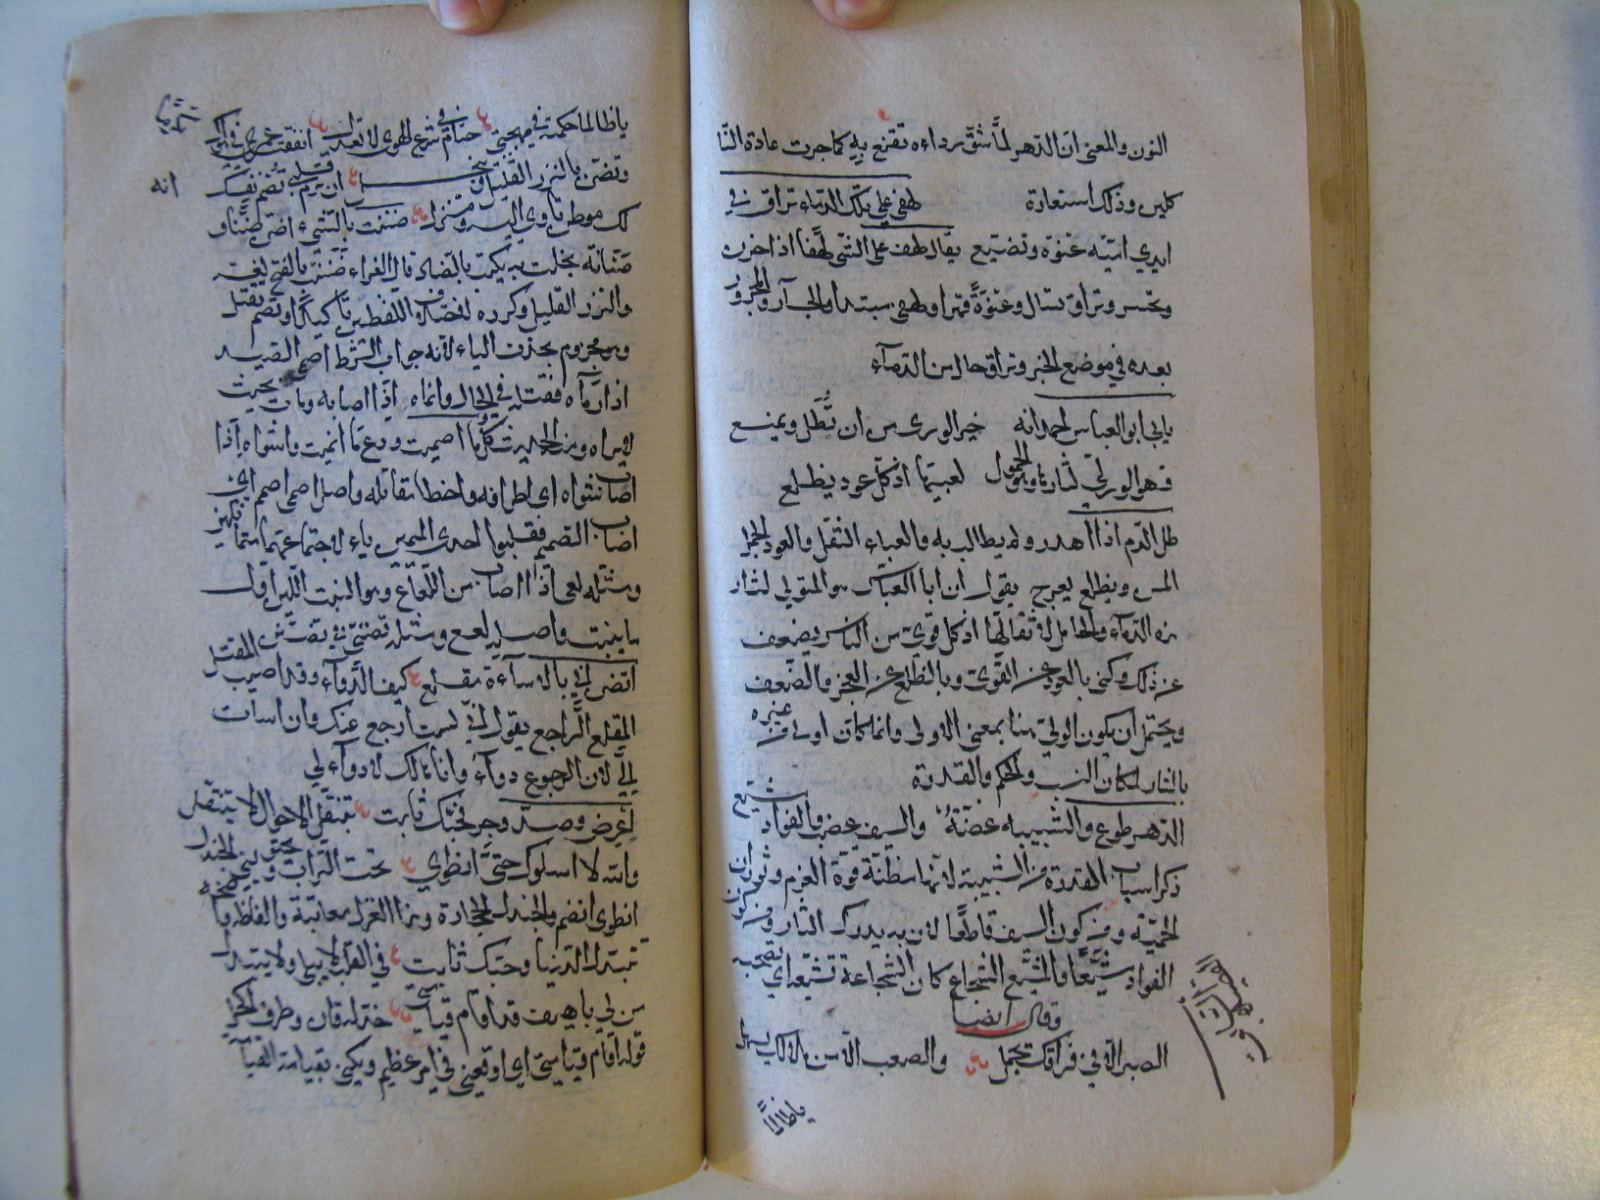 النون والمعنى ان الدهر لما شق رداءه تقنع به كما جرت عادة الثا
كلين وذلك استعارة لهفي على تلك الدماء تراق في
ايدي امية عنوة وتضيع يقال لهف على الشيء لهفا اذا حزن
وتحسر وتراق تسال وعنوة قهرا ولهفي مبتدا والجار والمجرور
بعده في موضع الخبر وتراق حال من الدماء
بابي ابو العباس احمد انه خير الورى من ان تطل ويمنع
فهو الولي لثارها والحمول لعبئها اذ كل عود يظلع
طل الدم اذا اهدر ولم يطالب به والعباء الثقل والعود الجمل
المسن ويظلع يعرج يقول ان ابا العباس هو المتولي لثار
هذه الدماء والحامل لاثقالها اذ كل قوي من الناس يضعف
عن ذلك وكنى بالعود عن القوي وبالظلع عن العجز والضعف
ويحتمل ان يكون الولي هنا بمعنى الاولى وانما كان اولى من غيره
بالثار لمكان النسب والحكم والقدرة
الدهر طوع والشبيبة غضة والسيف عضب والفؤاد مشيع
ذكر اسباب القدرة من الشبيبة لانها مظنة قوة العزم وثوران
الحمية ومن كون السيف قاطعا لان به يدرك الثار ومن كون
الفواد مشيعا والمشيع الشجاع كان الشجاعة تشيعه اي تصحبه
وقال ايضا
الصبر الا في فراقك يجمل والصعب الا من ملالك يسهل
يا ظالما
يا ظالما حكمته في مهجتي حتام في شرع الهوى لا تعدل انفقت عمري في هواك
تكرما
وتضن بالنزر القليل وتبخل ان ترم قلبي تصم نفسك انه
لك موطن تاوي اليه ومنزل ضننت بالشيء اضن ضنا و
ضنانة بخلت به يكون بالضاد قال الفراء ضننت بالفتح لغة
والنزر القليل وكرره لاختلاف اللفظين تاكيدا وتصم تقتل
وهو مجزوم بحذف الياء لانه جواب الشرط اصمى الصيد
اذا رماه فقتله في الحال وانماه اذا اصابه ومات بحيث
لا يراه ومن الحديث كل ما اصميت ودع ما انميت واشواه اذا
اصاب شواه اي اطرافه واخطا مقاتله واصل اصمى اصمم اي
اصاب الصميم فقلبوا احدى الميمين ياء لاجتماعهما
ومثله لعى اذا اصاب من اللعاع وهو النبت اللين اول
ما ينبت واصله لعع ومثله تضنى في تضنن
اتظن اني بالاساءة مقلع كيف الدواء وقد اصيب المقتل
المقلع الراجع يقول اني لست ارجع عنك وان اسات
الي لان الرجوع دواء وانا هالك لا دواء لي
اعرض وصد وجر فحبك ثابت بتنقل الاحوال لا يتنقل
والله لا اسلوك حتى انطوي تحت التراب ويحتويني الجندل
انطوى انضم والجندل الحجارة وهذا الغزل معاتبة
تتبدل الدنيا وحبك ثابت في القلب لا يبلى ولا يتبدل
من لي باهيف قد اقام قيامتي خد له قان وطرف اكحل
قوله اقام قيامتي اي اوقعني في امر عظيم ويكنى بقيامة القيامة